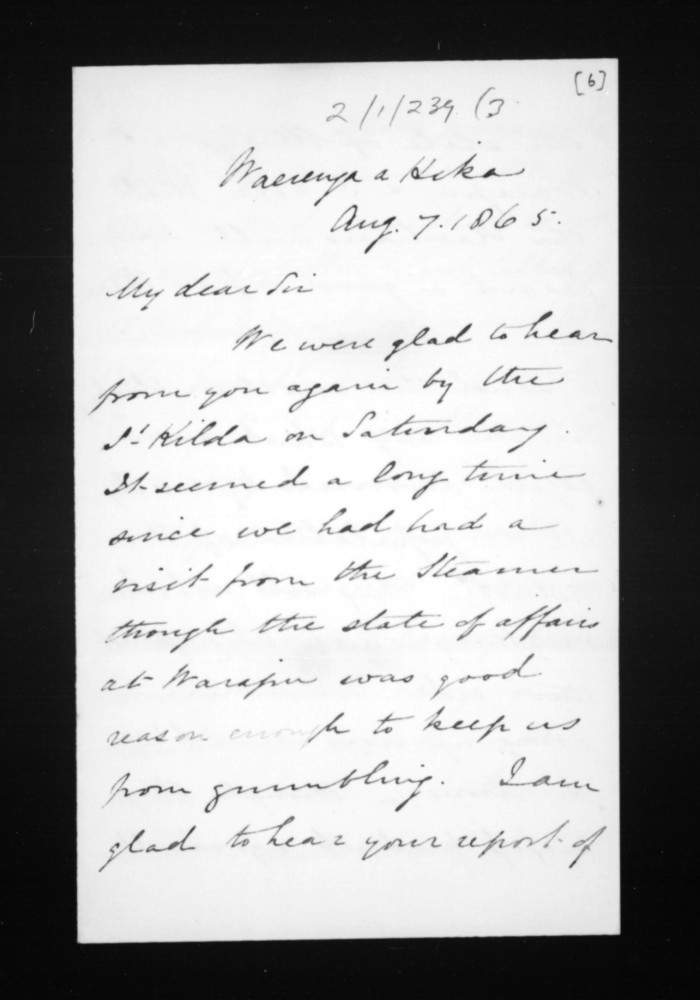 [6]
2/1/239 (3
Waerenga a Hika
Aug. 7. 1865.
My dear Sir
We were glad to hear
from you again by the
St Kilda on Saturday.
It seemed a long time
since we had had a
visit from the Steamer
though the state of affairs
at Warapu was good
reason enough to keep us
from grumbling. I am
glad to hear your report of